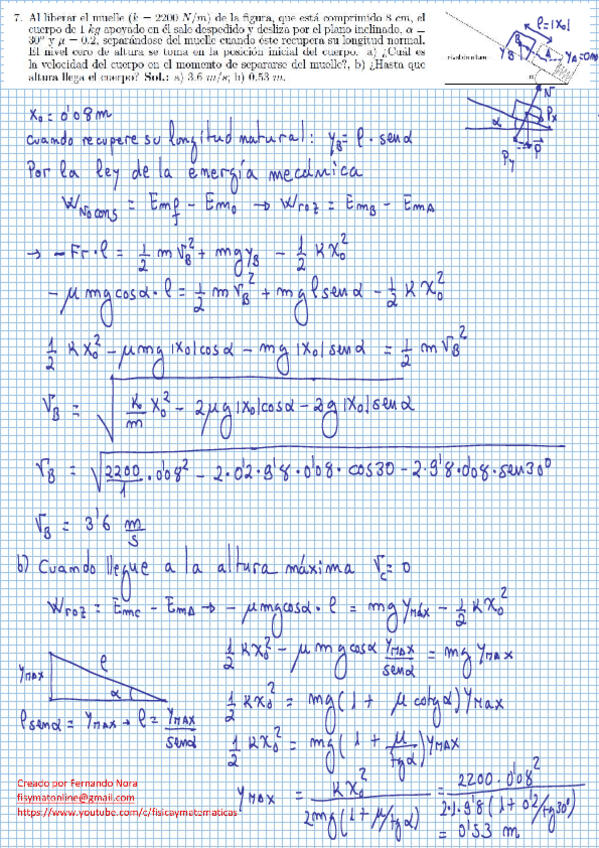 7. Al liberar el muelle (k = 2200 N/m) de la figura, que está comprimido 8 cm, el
cuerpo de 1 kg apoyado en él sale despedido y desliza por el plano inclinado, α =
30° y μ = 0.2, separándose del muelle cuando éste recupera su longitud normal.
El nivel cero de altura se toma en la posición inicial del cuerpo. a) ¿Cuál es
la velocidad del cuerpo en el momento de separarse del muelle?, b) ¿Hasta que
altura llega el cuerpo? Sol.: a) 3.6 m/s; b) 0.53 m.
ℓ=|X₀|
B
A
y_B
y_A=0m
α
N
P_x
α
P_y
P
X₀ = 0'08 m
Cuando recupere su longitud natural: y_B = ℓ · senα
Por la ley de la energía mecánica
W_Nocons = Em_f - Em_0 → W_roz = Em_B - Em_A
→ - Fr · ℓ = 1/2 m V_B² + mg y_B - 1/2 K X₀²
- μ mg cosα · ℓ = 1/2 m V_B² + mg ℓ senα - 1/2 K X₀²
1/2 K X₀² - μmg |X₀| cosα - mg |X₀| senα = 1/2 m V_B²
V_B = √(K/m X₀² - 2μg |X₀| cosα - 2g |X₀| senα)
V_B = √(2200/1 · 0'08² - 2·0'2·9'8·0'08 · cos30 - 2·9'8·0'08·sen30°)
V_B = 3'6 m/s
b) Cuando llegue a la altura máxima V_C = 0
W_roz = Em_C - Em_A → - μmgcosα · ℓ = mg y_máx - 1/2 K X₀²
1/2 K X₀² - μ mg cosα y_MAX/senα = mg y_MAX
y_MAX
ℓ
α
1/2 K X₀² = mg(1 + μ cotgα) y_MAX
ℓ senα = y_MAX → ℓ = y_MAX/senα
1/2 K X₀² = mg(1 + μ/tgα) y_MAX
Creado por Fernando Nora
fisymatonline@gmail.com
https://www.youtube.com/c/fisicaymatematicas
y_MAX = K X₀²/2mg(1+μ/tgα) = 2200·0'08²/2·1·9'8(1+0'2/tg30°)
= 0'53 m